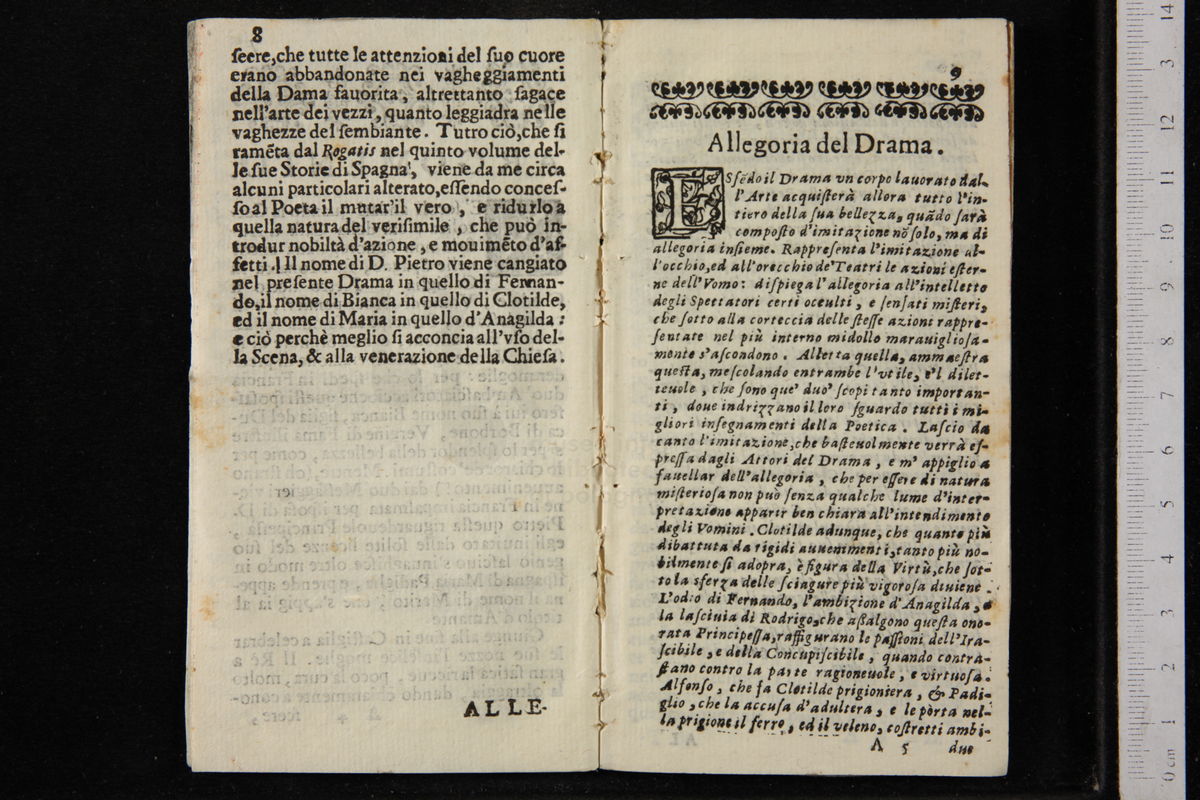 8
ſcere,che tutte le attenzioni del ſuo cuore
erano abbandonate nei vagheggiamenti
della Dama fauorita, altrettanto ſagace
nell'arte dei vezzi, quanto leggiadra nelle
vaghezze del ſembiante. Tutto ciò,che ſi
ramẽta dal Rogatis nel quinto volume del-
le ſue Storie di Spagna, viene da me circa
alcuni particolari alterato,eſſendo conceſ-
ſo al Poeta il mutar'il vero, e ridurlo a
quella natura del veriſimile, che può in-
trodur nobiltà d'azione, e mouimẽto d'aſ-
fetti. Il nome di D. Pietro viene cangiato
nel preſente Drama in quello di Fernan-
do,il nome di Bianca in quello di Clotilde,
ed il nome di Maria in quello d'Anagilda:
e ciò perchè meglio ſi acconcia all'vſo del-
la Scena, & alla venerazione della Chieſa.
ALLE-
9
Allegoria del Drama.
ESſẽdo il Drama vn corpo lauorato dal-
l'Arte acquiſterà allora tutto l'in-
tiero della ſua bellezza, quãdo ſarà
compoſto d'imitazione nõ ſolo, ma di
allegoria inſieme. Rappreſenta l'imitazione al-
l'occhio,ed all'orecchio de'Teatri le azioni eſter-
ne dell'Vomo: diſpiega l'allegoria all'intelletto
degli Spettatori certi occulti, e ſenſati miſteri,
che ſotto alla corteccia delle ſteſſe azioni rappre-
ſentate nel più interno midollo marauiglioſa-
mente s'aſcondono. Alletta quella, ammaeſtra
queſta, meſcolando entrambe l'vtile, e'l dilet-
teuole, che ſono que' duo' ſcopi tanto importan-
ti, doue indrizzano il loro ſguardo tutti i mi-
gliori inſegnamenti della Poetica. Laſcio da
canto l'imitazione,che baſteuolmente verrà eſ-
preſſa dagli Attori del Drama, e m'appiglio a
fauellar dell'allegoria, che per eſſere di natura
miſterioſa non può ſenza qualche lume d'inter-
pretazione apparir ben chiara all'intendimento
degli Vomini. Clotilde adunque, che quanto più
dibattuta da rigidi auuenimenti,tanto più no-
bilmente ſi adopra, è figura della Virtù,che ſot-
to la sferza delle ſciagure più vigoroſa diuiene.
L'odio di Fernando, l'ambizione d'Anagilda, e
la laſciuia di Rodrigo,che aſſalgono queſta ono-
rata Principeſſa,raffigurano le paſſioni dell'Ira-
ſcibile, e della Concupiſcibile, quando contra-
ſtano contro la parte ragioneuole, e virtuoſa.
Alfonſo, che fa Clotilde prigioniera, & Padi-
glio, che la accuſa d'adultera, e le pòrta nel-
la prigione il ferro, ed il veleno, coſtretti ambi-
A 5 due